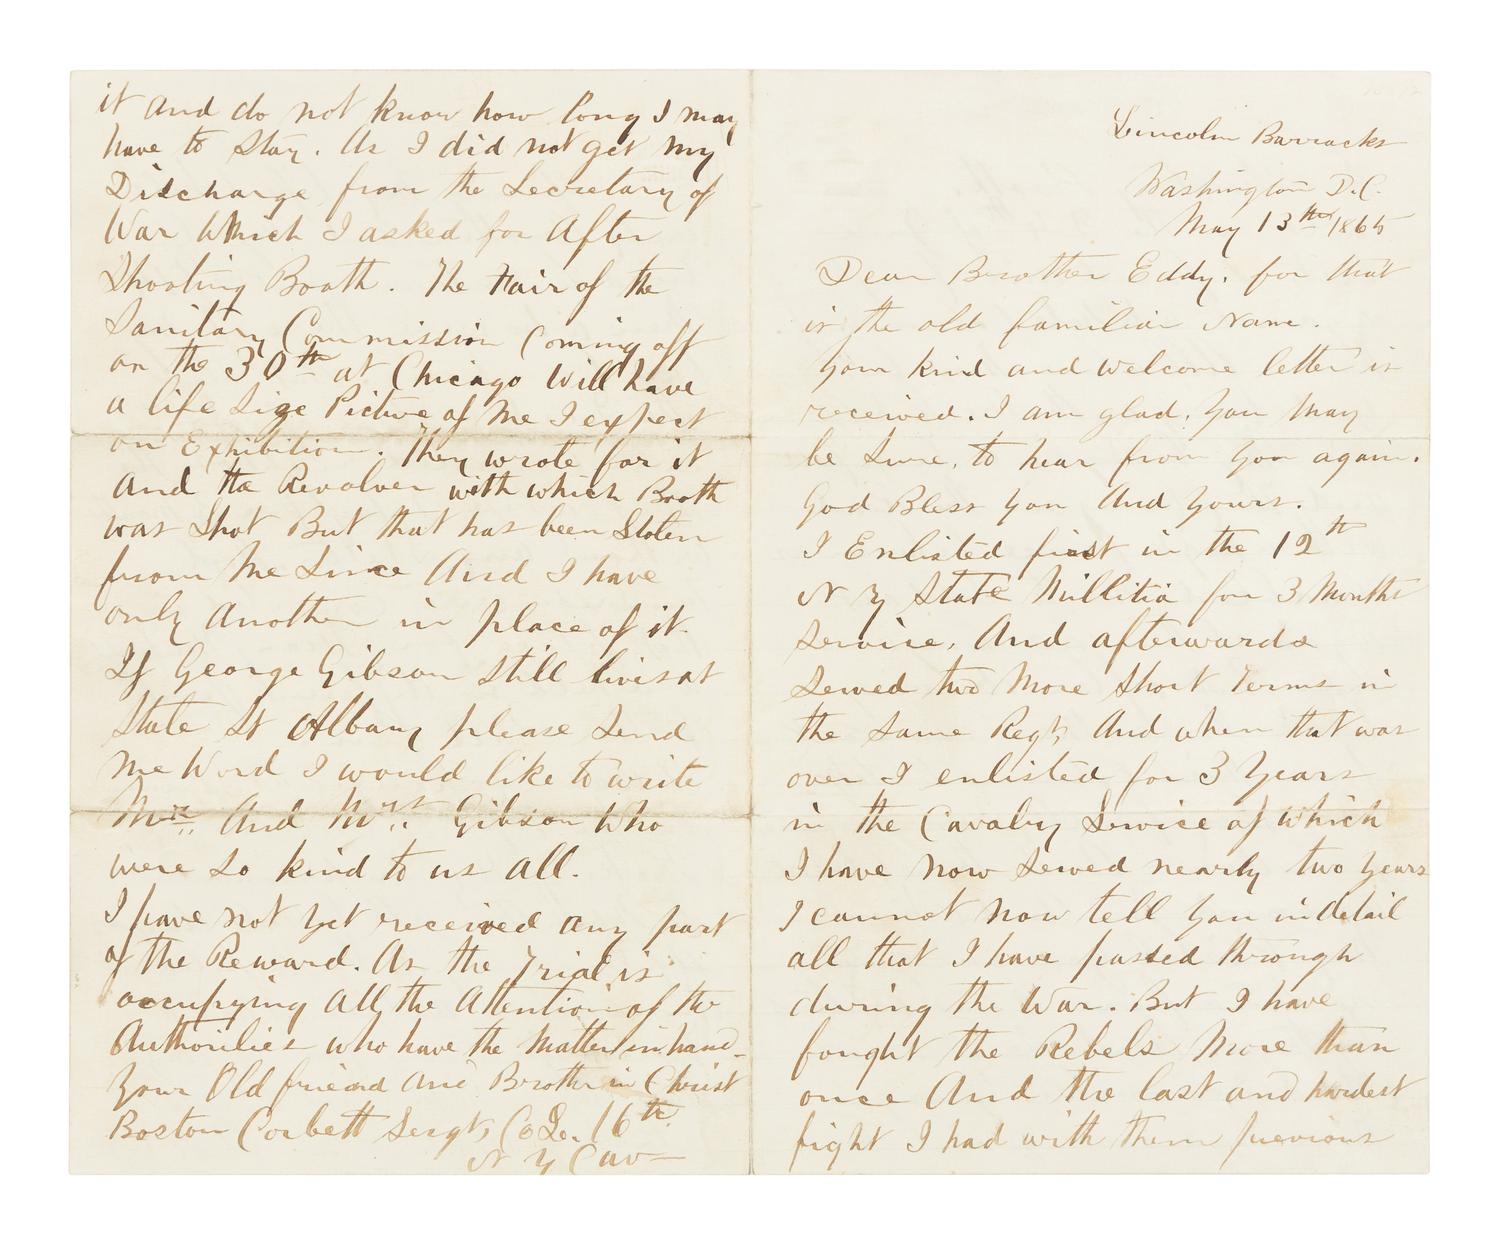 Lincoln Barracks
Washington D.C.
May 13th 1865
Dear Brother Eddy. for that
is the old familiar Name.
Your kind and welcome letter is
received. I am glad, you May
be Sure, to hear from you again.
God Bless You And Yours.
I Enlisted first in the 12th
N Y State Millitia for 3 Months
Service, And afterwards
Served two More Short Terms in
the Same Regt, And when that was
over I enlisted for 3 Years
in the Cavalry Service of Which
I have Now Served nearly two Years
I cannot Now tell You in detail
all that I have passed through
during the War. But I have
fought the Rebels More than
once And the last and hardest
fight I had with them previous
it and do not know how long I may
have to Stay. As I did not get My
Discharge from the Secretary of
War Which I asked for After
Shooting Booth. The Fair of the
Sanitary Commission Coming off
on the 30th at Chicago Will have
a life Size Picture of Me I expect
on Exhibition. They wrote for it
And the Revolver with which Booth
was Shot But that has been Stolen
from Me Since And I have
only Another in place of it.
If George Gibson Still lives at
State St Albany please Send
Me Word I would like to write
Mr. And Mrs. Gibson Who
were So kind to us All.
I have not Yet received any part
of the Reward. As the Trial is
occupying All the Attention of the
Authorities who have the Matter in hand-
Your Old friend And Brother in Christ
Boston Corbett Sergt, Co L. 16th
N Y Cav